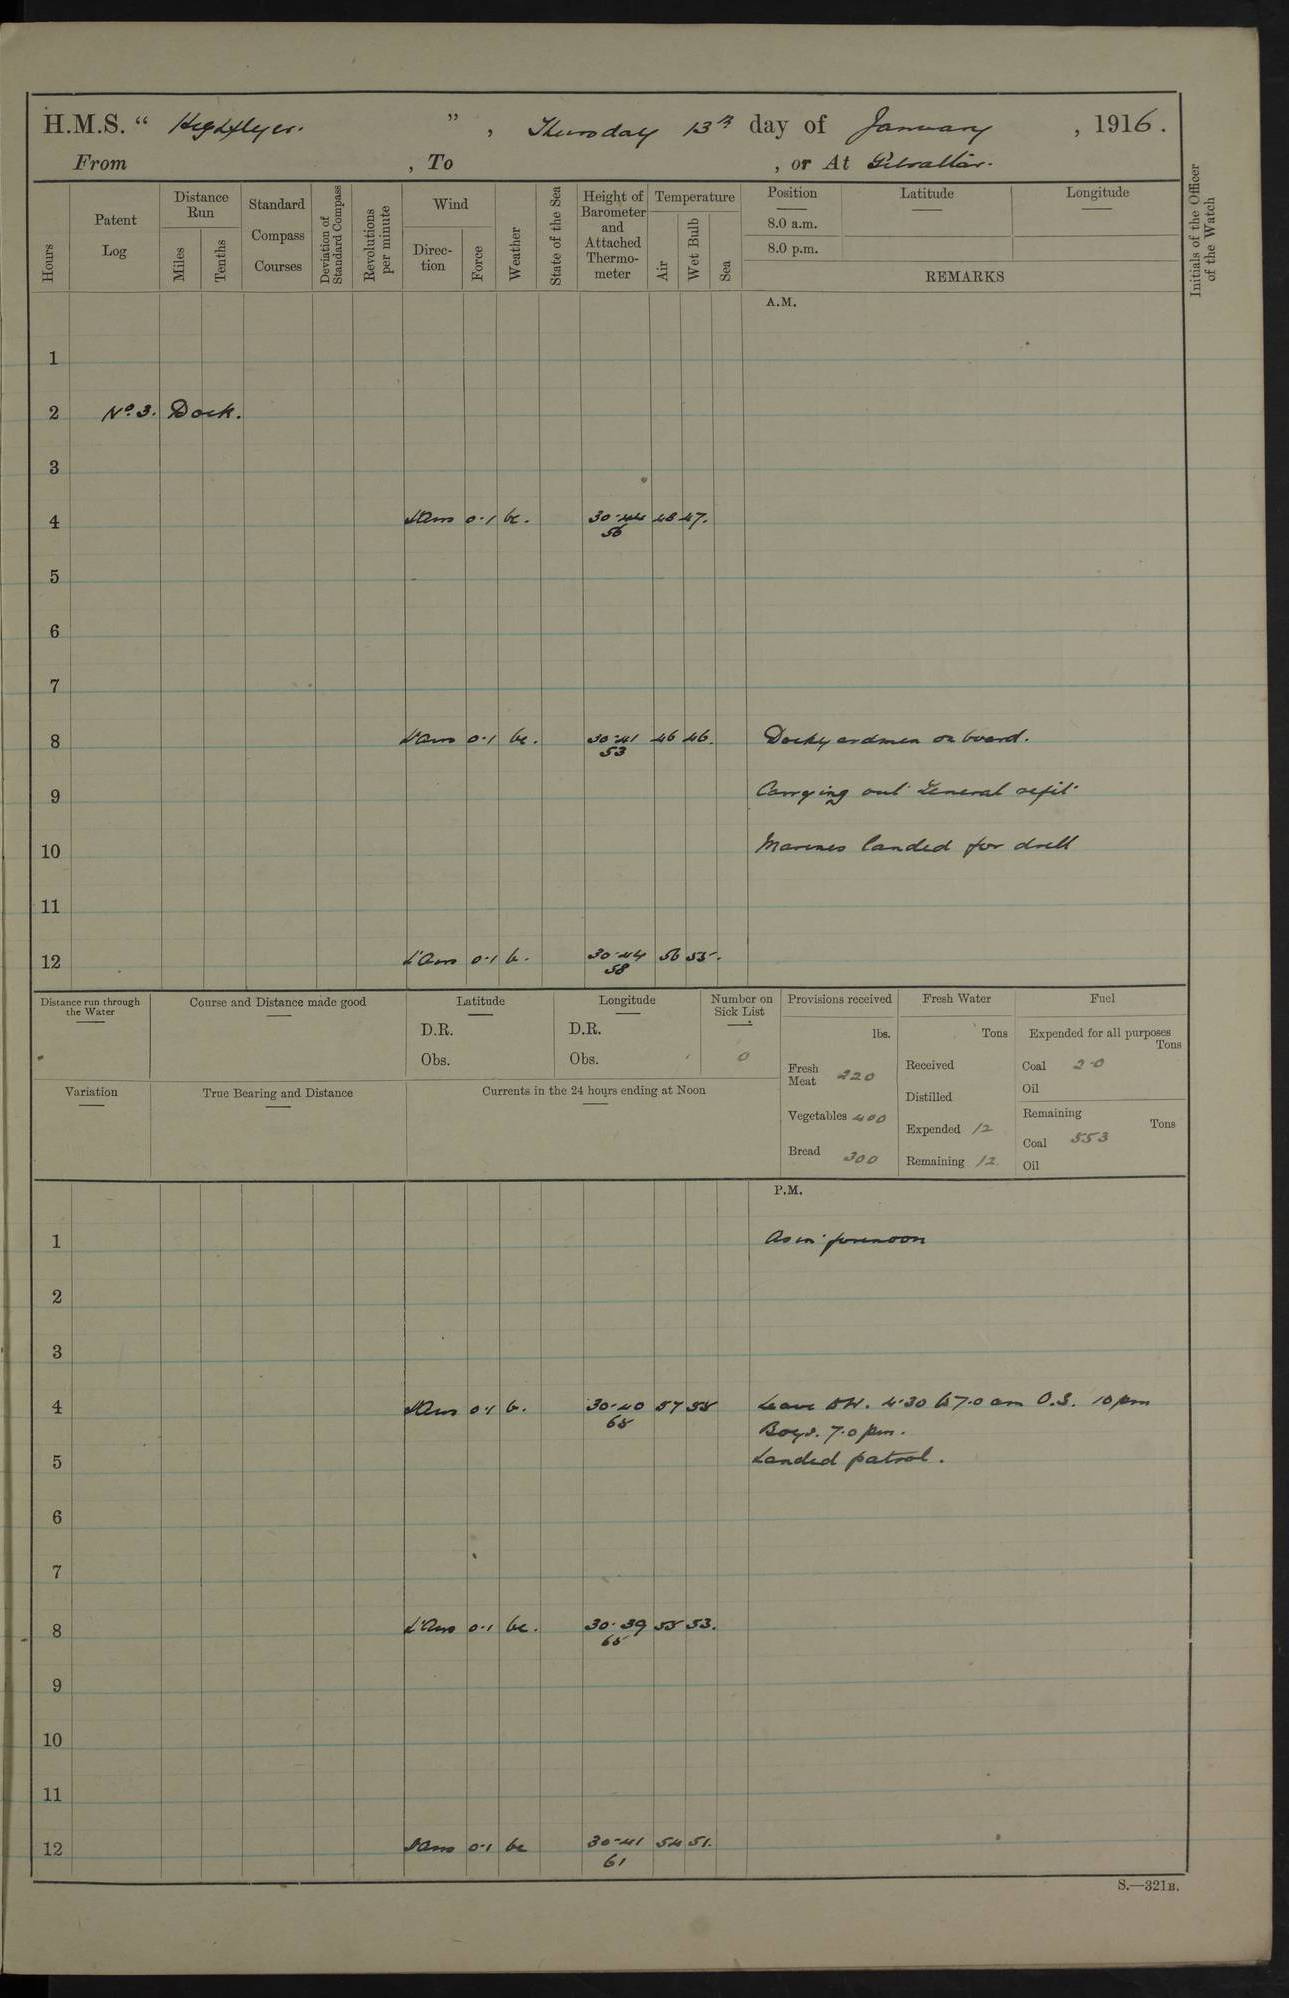 H.M.S. “ Highflyer. ” , Thursday 13th day of January , 1916.
From , To , or At Gibraltar.
Hours
Patent Log
Distance Run
Miles
Tenths
Standard Compass Courses
Deviation of Standard Compass
Revolutions per minute
Wind
Direc-tion
Force
Weather
State of the Sea
Height of Barometer and Attached Thermo-meter
Temperature
Air
Wet Bulb
Sea
Position
Latitude
Longitude
8.0 a.m.
8.0 p.m.
REMARKS
Initials of the Officer of the Watch
A.M.
1
2 No. 3. Dock.
3
4 L'Airs 0-1 bc. 30-44 48 47.
56
5
6
7
8 L'Airs 0-1 bc. 30-41 46 46. Dockyardmen on board.
53
9 Carrying out General refit
10 Marines landed for drill
11
12 L'Airs 0-1 b. 30-44 56 55.
58
Distance run through the Water
Course and Distance made good
Latitude
D.R.
Obs.
Longitude
D.R.
Obs.
Number on Sick List
0
Provisions received
lbs.
Fresh Meat 220
Vegetables 400
Bread 300
Fresh Water
Tons
Received
Distilled
Expended 12
Remaining 12
Fuel
Expended for all purposes
Tons
Coal 20
Oil
Remaining
Tons
Coal 553
Oil
Variation
True Bearing and Distance
Currents in the 24 hours ending at Noon
P.M.
1 As in forenoon
2
3
4 L'Airs 0-1 b. 30-40 57 55 Leave 4.30 to 7.0 am O.S. 10 pm
65
Boys. 7.0 pm.
5 Landed patrol.
6
7
8 L'Airs 0-1 bc. 30-39 55 53.
65
9
10
11
12 L'Airs 0-1 bc 30-41 54 51.
61
S.—321B.